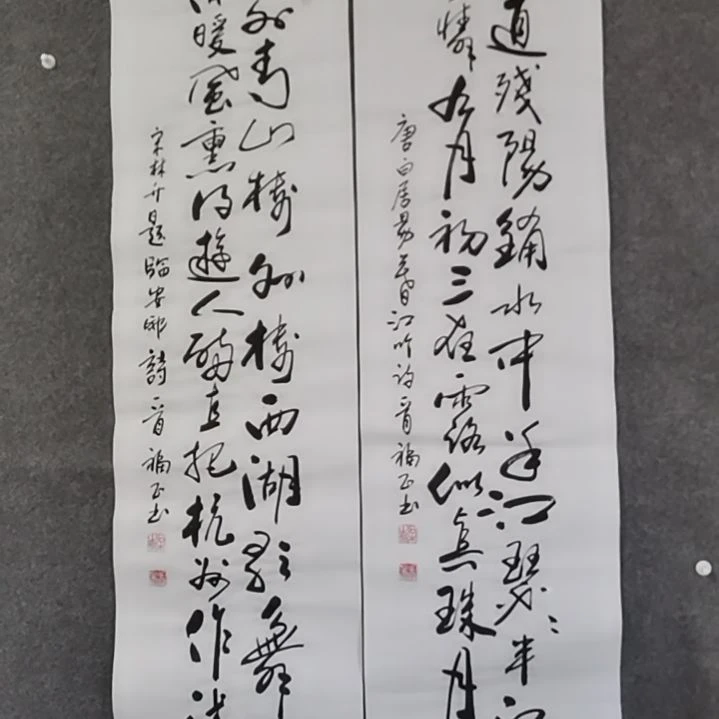 道殘陽鋪水中半江瑟〻半江
憐九月初三夜露似真珠月
唐白居易暮江吟詩一首福正书
外青山樓外樓西湖歌舞
暖風熏得遊人醉直把杭州作汴
宋林升題臨安邸詩一首福正书